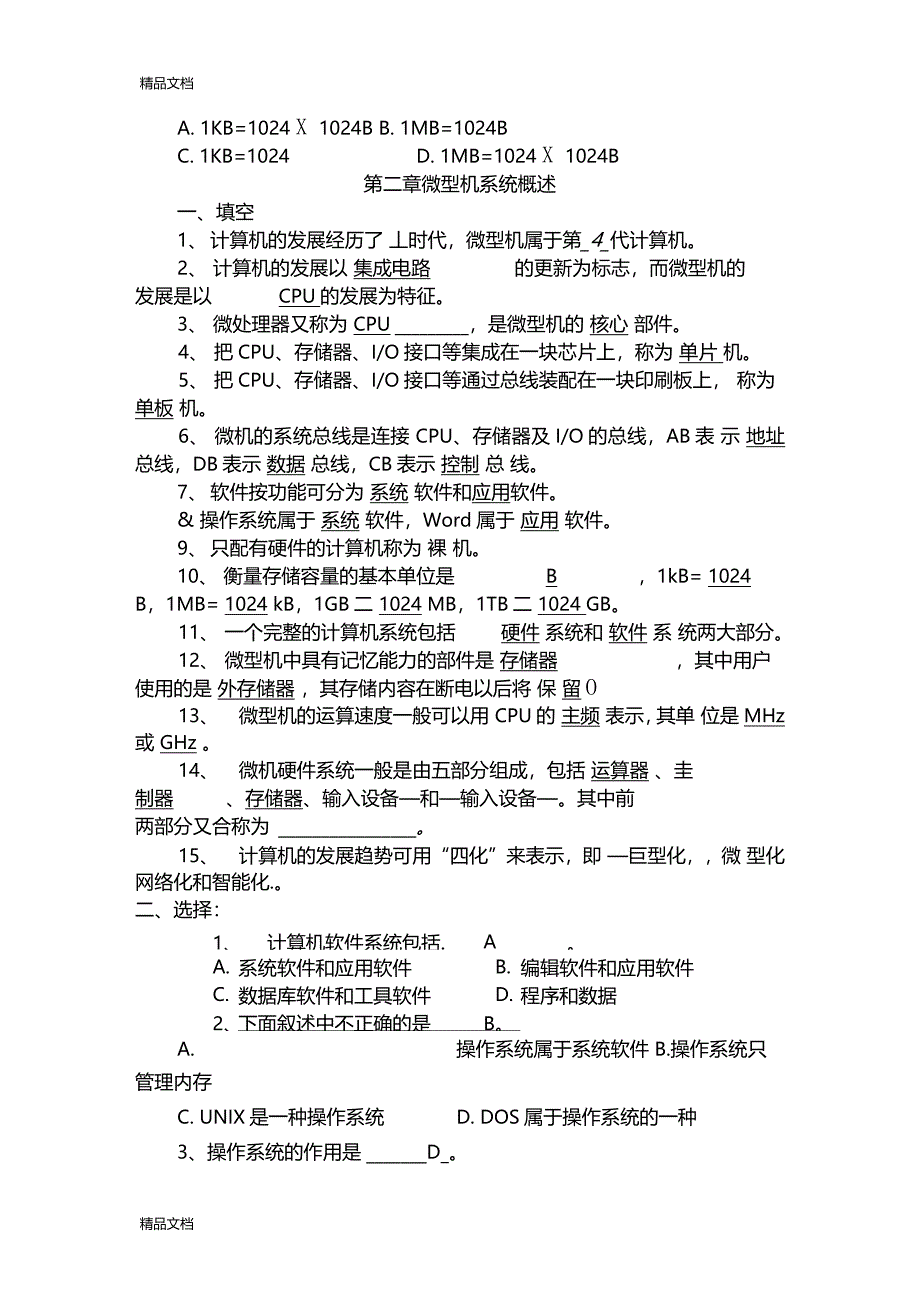 精品文档
A. 1KB=1024 X 1024B B. 1MB=1024B
C. 1KB=1024 D. 1MB=1024 X 1024B
第二章微型机系统概述
一、填空
1、 计算机的发展经历了 丄时代，微型机属于第_4_代计算机。
2、 计算机的发展以 集成电路 的更新为标志，而微型机的
发展是以 CPU 的发展为特征。
3、 微处理器又称为 CPU ________，是微型机的 核心 部件。
4、 把 CPU、存储器、I/O 接口等集成在一块芯片上，称为 单片 机。
5、 把 CPU、存储器、I/O 接口等通过总线装配在一块印刷板上， 称为
单板 机。
6、 微机的系统总线是连接 CPU、存储器及 I/O 的总线，AB 表 示 地址
总线，DB 表示 数据 总线，CB 表示 控制 总 线。
7、 软件按功能可分为 系统 软件和应用软件。
& 操作系统属于 系统 软件，Word 属于 应用 软件。
9、 只配有硬件的计算机称为 裸 机。
10、 衡量存储容量的基本单位是 B ，1kB= 1024
B，1MB= 1024 kB，1GB 二 1024 MB，1TB 二 1024 GB。
11、 一个完整的计算机系统包括 硬件 系统和 软件 系 统两大部分。
12、 微型机中具有记忆能力的部件是 存储器 ，其中用户
使用的是 外存储器 ，其存储内容在断电以后将 保 留()
13、 微型机的运算速度一般可以用 CPU 的 主频 表示，其单 位是 MHz
或 GHz 。
14、 微机硬件系统一般是由五部分组成，包括 运算器 、圭
制器 、存储器、输入设备—和—输入设备—。其中前
两部分又合称为 _______________。
15、 计算机的发展趋势可用“四化”来表示，即 —巨型化，，微 型化
网络化和智能化.。
二、选择：
1、 计算机软件系统包括. A 。
A. 系统软件和应用软件 B. 编辑软件和应用软件
C. 数据库软件和工具软件 D. 程序和数据
2、下面叙述中不正确的是 B。
A. 操作系统属于系统软件 B.操作系统只
管理内存
C. UNIX 是一种操作系统 D. DOS 属于操作系统的一种
3、操作系统的作用是 _______D_。
精品文档